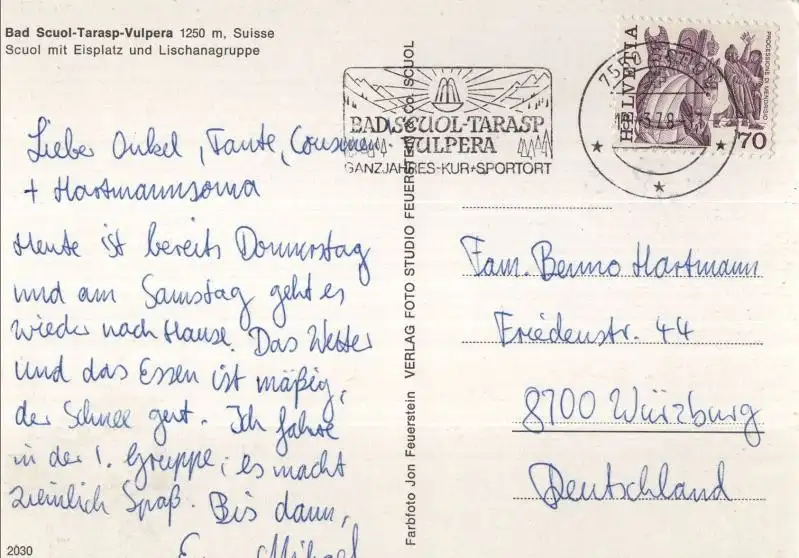 Bad Scuol-Tarasp-Vulpera 1250 m, Suisse
Scuol mit Eisplatz und Lischanagruppe
Lieber Onkel, Tante, Cousinen
+ Hartmannsoma
Heute ist bereits Donnerstag
und am Samstag geht es
wieder nach Hause. Das Wetter
und das Essen ist mäßig,
der Schnee gut. Ich fahre
in der 1. Gruppe; es macht
ziemlich Spaß. Bis dann,
2030
Farbfoto Jon Feuerstein VERLAG FOTO STUDIO FEUERSTEIN & Co. SCUOL
BAD SCUOL-TARASP
VULPERA
GANZJAHRES-KUR+SPORTORT
HELVETIA
PROCESSIONE DI MENDRISIO
70
Fam. Benno Hartmann
Friedenstr. 44
8700 Würzburg
Deutschland